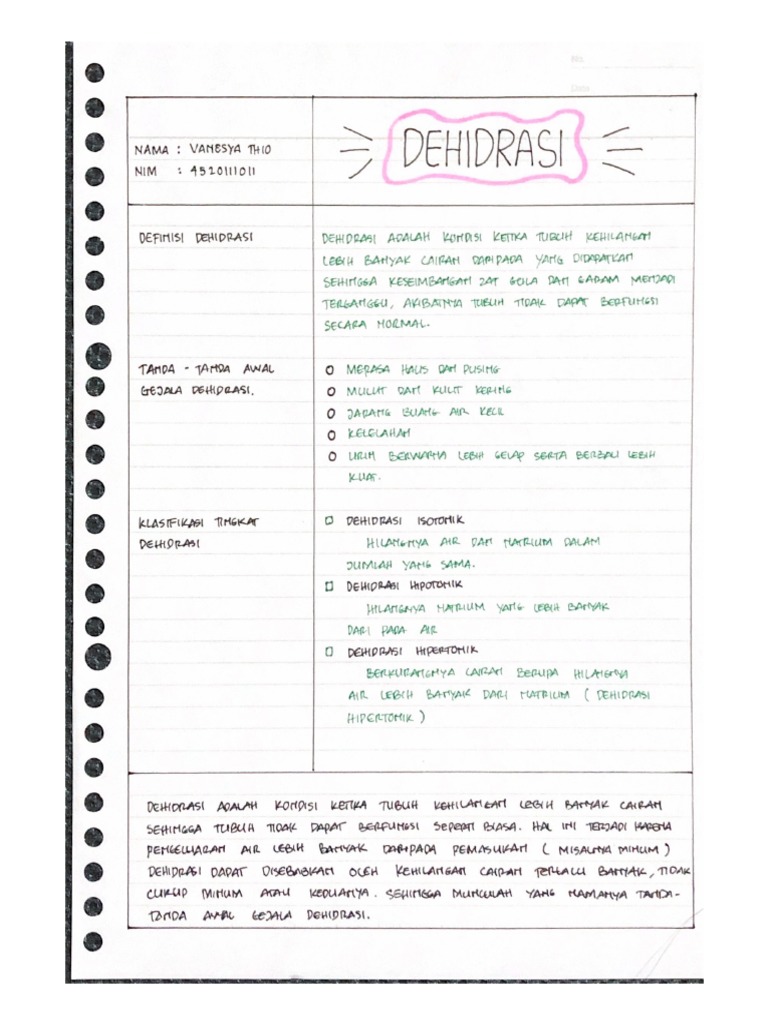 No.
Date
NAMA : VANESYA THIO
NIM : 4520111011
DEHIDRASI
DEFINISI DEHIDRASI
DEHIDRASI ADALAH KONDISI KETIKA TUBUH KEHILANGAN
LEBIH BANYAK CAIRAN DARIPADA YANG DIDAPATKAN
SEHINGGA KESEIMBANGAN ZAT GULA DAN GARAM MENJADI
TERGANGGU, AKIBATNYA TUBUH TIDAK DAPAT BERFUNGSI
SECARA NORMAL.
TANDA - TANDA AWAL
GEJALA DEHIDRASI.
MERASA HAUS DAN PUSING
MULUT DAN KULIT KERING
JARANG BUANG AIR KECIL
KELELAHAN
URIN BERWARNA LEBIH GELAP SERTA BERBAU LEBIH
KUAT.
KLASIFIKASI TINGKAT
DEHIDRASI
DEHIDRASI ISOTONIK
HILANGNYA AIR DAN NATRIUM DALAM
JUMLAH YANG SAMA.
DEHIDRASI HIPOTONIK
HILANGNYA NATRIUM YANG LEBIH BANYAK
DARI PADA AIR
DEHIDRASI HIPERTONIK
BERKURANGNYA CAIRAN BERUPA HILANGNYA
AIR LEBIH BANYAK DARI NATRIUM ( DEHIDRASI
HIPERTONIK )
DEHIDRASI ADALAH KONDISI KETIKA TUBUH KEHILANGAN LEBIH BANYAK CAIRAN
SEHINGGA TUBUH TIDAK DAPAT BERFUNGSI SEPERTI BIASA. HAL INI TERJADI KARENA
PENGELUARAN AIR LEBIH BANYAK DARIPADA PEMASUKAN ( MISALNYA MINUM )
DEHIDRASI DAPAT DISEBABKAN OLEH KEHILANGAN CAIRAN TERLALU BANYAK, TIDAK
CUKUP MINUM ATAU KEDUANYA. SEHINGGA MUNCULAH YANG NAMANYA TANDA-
TANDA AWAL GEJALA DEHIDRASI.